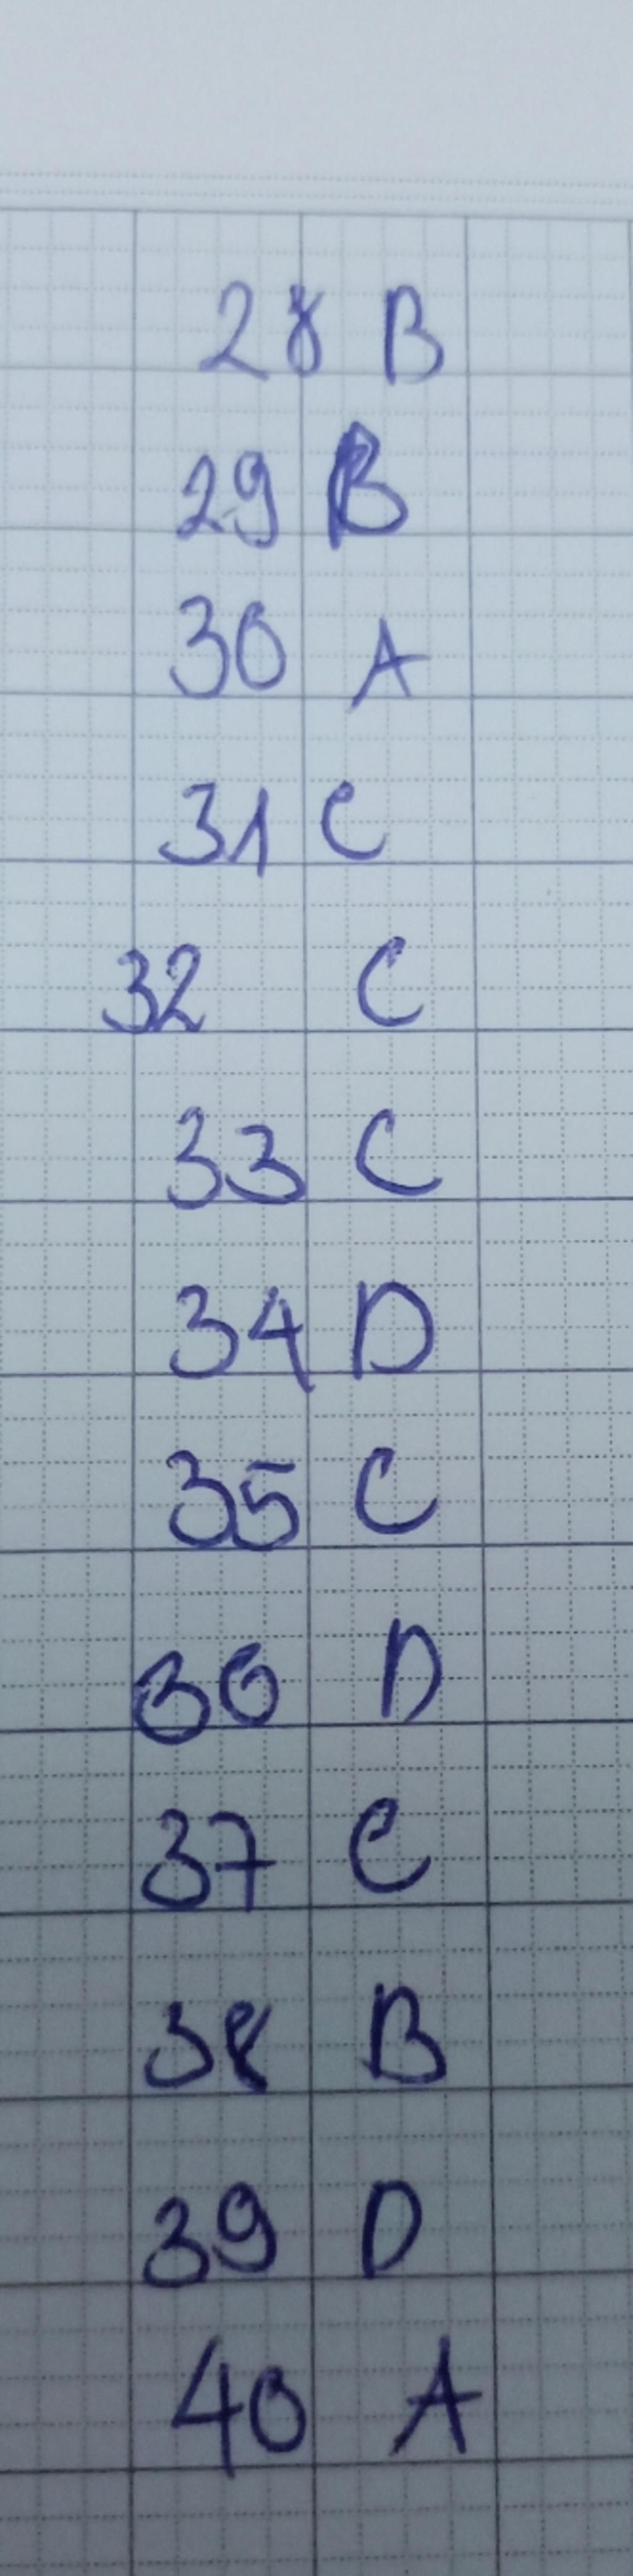 28 B
29 B
30 A
31 C
32 C
33 C
34 D
35 C
36 D
37 C
38 B
39 D
40 A